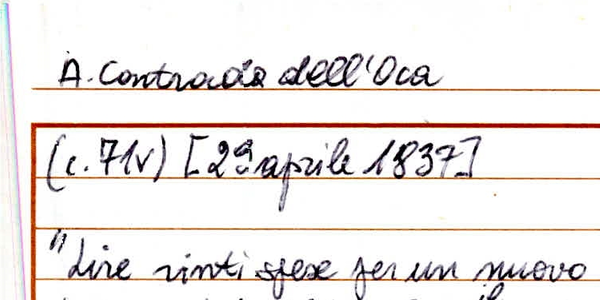 A. Contrada dell'Oca
(c. 71v) [29 aprile 1837]
"Lire vinti spese per un nuovo